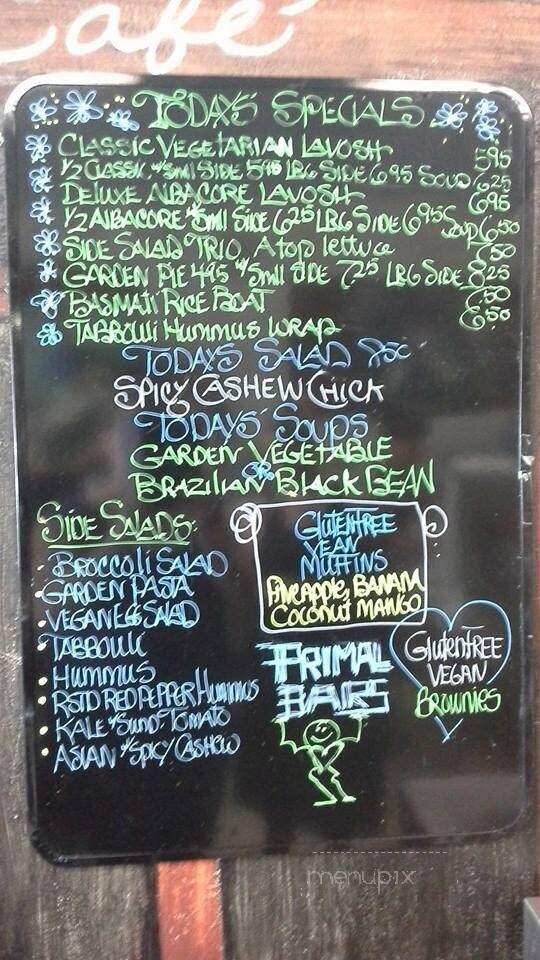 Café
TODAYS SPECIALS
CLASSIC VEGETARIAN LAVOSH 595
1/2 CLASSIC W/SMll SIDE 595 LRG SIDE 695 SOUP 625
DELUXE ALBACORE LAVOSH 695
1/2 ALBACORE W/Smll SIDE 625 LRG SIDE 695 SOUP 650
SIDE SALAD TRIO, ATop lettuce 750
GARDEN PIE 495 W/Smll SIDE 725 LRG SIDE 825
BASMATI RICE BOAT 750
TABBOULI HUMMUS WRAP 650
TODAYS SALAD 850
SPICY CASHEW CHICK
TODAYS SOUPS
GARDEN VEGETABLE
OR
BRAZILIAN BLACK BEAN
SIDE SALADS:
BROCCOLI SALAD
GARDEN PASTA
VEGAN EGG SALAD
TABBOULI
HUMMUS
RSTD RED PEPPER HUMMUS
KALE W/SUND TOMATO
ASIAN W/SPICY CASHEW
GLUTENFREE
VEAN
MUFFINS
PINEAPPLE, BANANA
COCONUT MANGO
PRIMAL
BARS
GLUTENFREE
VEGAN
BROWNIES
menupix